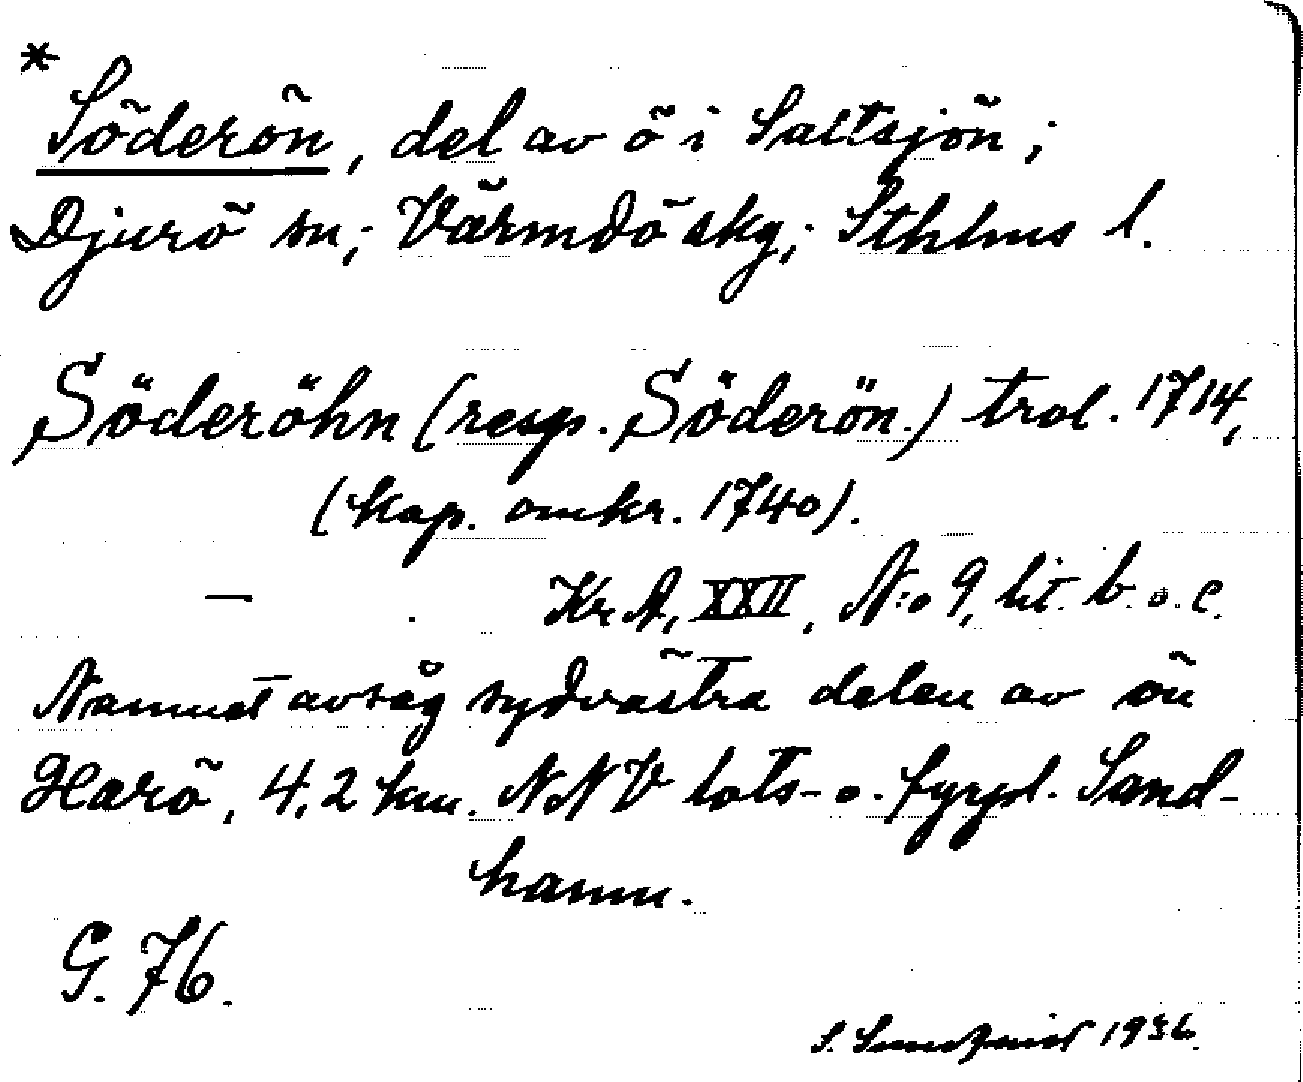 *
Söderön, del av ö i Saltsjön;
Djurö sn; Värmdö skg; Sthlms l.
Söderöhn (resp. Söderön.) trol. 1714,
(kop. omkr. 1740).
— Kr A, XXII, N:o 9, lit. b. o. c.
Namnet avsåg sydvästra delen av ön
Harö, 4,2 km. NNV lots- o. fyrpl. Sand-
hamn.
G. 76.
S. 1936.